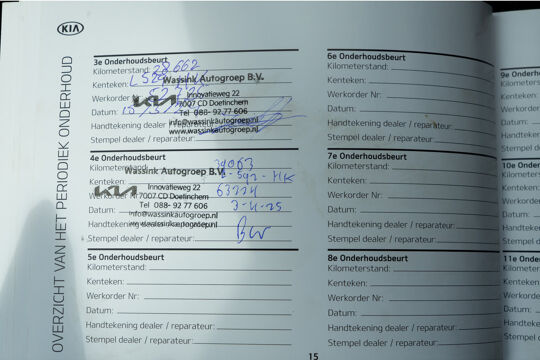 KIA
OVERZICHT VAN HET PERIODIEK ONDERHOUD
3e Onderhoudsbeurt
Kilometerstand: 28.662
Kenteken:
Wassink Autogroep B.V.
Werkorder Nr:
Innovatieweg 22
KIA
7007 CD Doetinchem
Datum:
Tel 088- 92 77 606
Handtekening dealer / reparateur:
info@wassinkautogroep.nl
www.wassinkautogroep.nl
Stempel dealer / reparateur:
4e Onderhoudsbeurt
Kilometerstand: 39063
Wassink Autogroep B.V.
Kenteken:
KIA
Innovatieweg 22
Werkorder Nr:
7007 CD Doetinchem
Tel 088- 92 77 606
Datum: 3-4-25
info@wassinkautogroep.nl
Handtekening dealer / reparateur:
www.wassinkautogroep.nl
Stempel dealer / reparateur:
5e Onderhoudsbeurt
Kilometerstand:
Kenteken:
Werkorder Nr:
Datum:
Handtekening dealer / reparateur:
Stempel dealer / reparateur:
6e Onderhoudsbeurt
Kilometerstand:
Kenteken:
Werkorder Nr:
Datum:
Handtekening dealer / reparateur:
Stempel dealer / reparateur:
7e Onderhoudsbeurt
Kilometerstand:
Kenteken:
Werkorder Nr:
Datum:
Handtekening dealer / reparateur:
Stempel dealer / reparateur:
8e Onderhoudsbeurt
Kilometerstand:
Kenteken:
Werkorder Nr:
Datum:
Handtekening dealer / reparateur:
Stempel dealer / reparateur:
15
9e Onderh
Kilometers
Kenteken:
Werkorder
Datum:
Handteken
Stempel d
10e Onder
Kilometer
Kenteken
Werkorde
Datum:
Handteke
Stempel
11e Onder
Kilomete
Kenteke
Werkord
Datum:
Handtek
Stempel